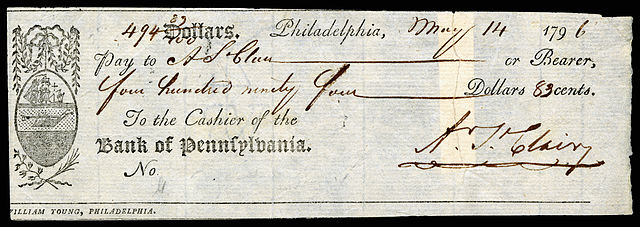 494 83/100 Dollars. Philadelphia, May 14 1796
Pay to Ar St Clair or Bearer,
four hundred ninety four Dollars 83 cents.
To the Cashier of the
Bank of Pennsylvania.
Ar. St. Clair
No.
WILLIAM YOUNG, PHILADELPHIA.